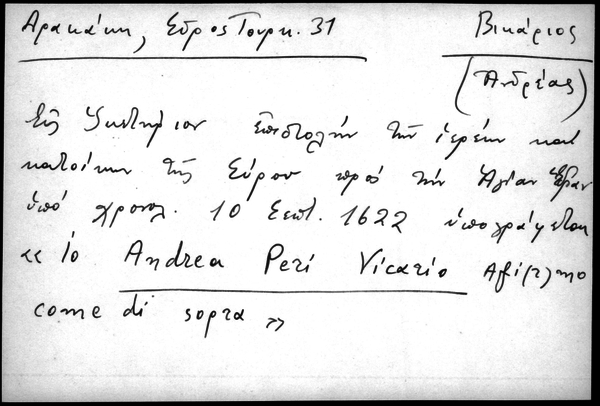 Δρακάκη, Σύρος Τουρκ. 31
Βικάριος
(Ἀνδρέας)
Εἰς ἱκετήριον ἐπιστολὴν τῶν ἱερέων καὶ
κατοίκων τῆς Σύρου πρὸς τὴν Ἁγίαν Ἕδραν
ὑπὸ χρονολ. 10 Σεπτ. 1622 ὑπογράφεται
«Io Andrea Peri Vicario Affi(r)mo
come di sopra»